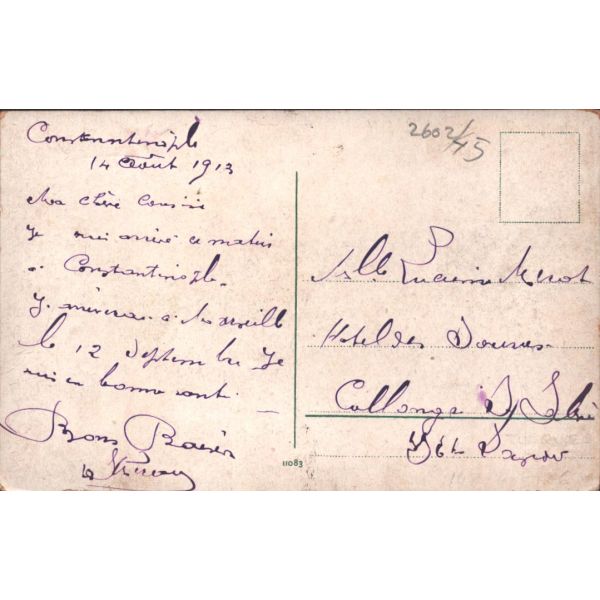 Constantinople
14 Août 1913
Ma chère Cousine
Je suis arrivé ce matin
a Constantinople
Je à Marseille
le 12 Septembre Je
suis en bonne santé.
Bons Baisers
2602/45
Melle Lucienne
Hotel des Douanes
Collonge
Hte
11083